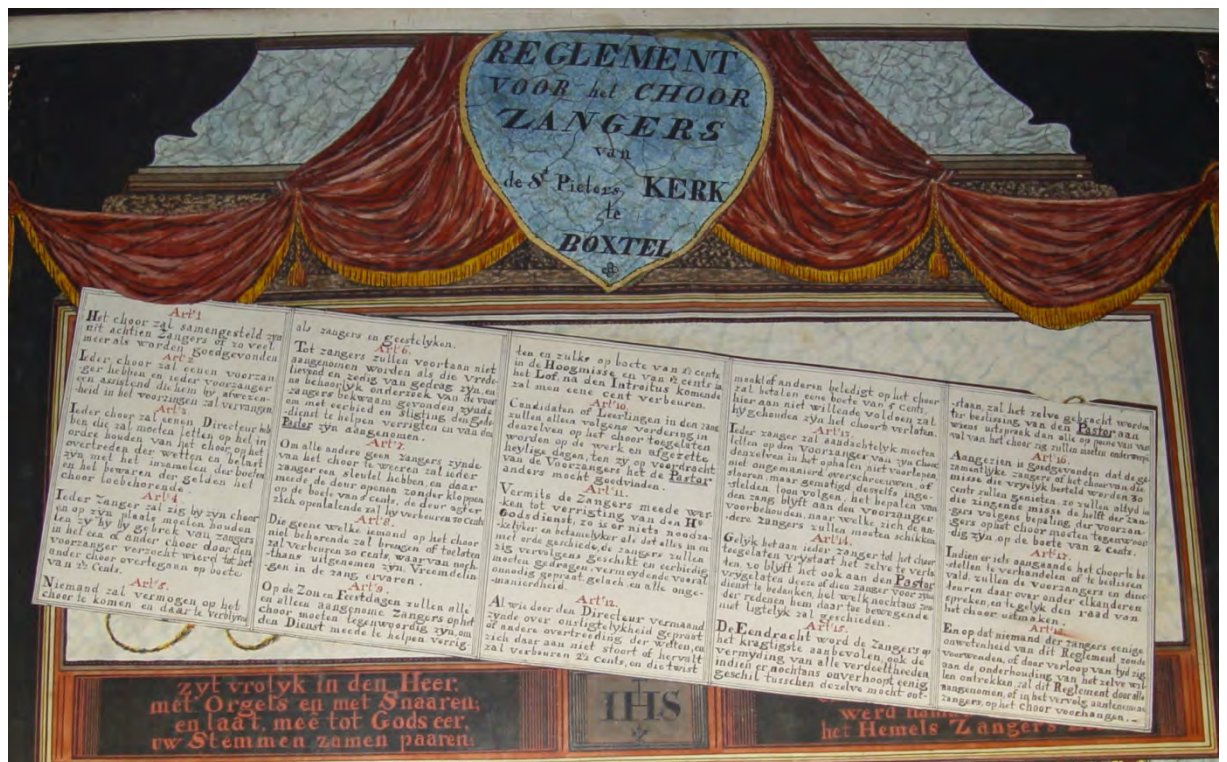 REGLEMENT
VOOR het CHOOR
ZANGERS
van
de St Pieters KERK
te
BOXTEL
Art:1
Het choor zal samengesteld zyn
uit achtien Zangers of zo veel
meer als worden goedgevonden
Art:2
Ieder choor zal eenen voorzan-
ger hebben en ieder voorzanger
een assistend die hem by afwezen-
heid in het voorzingen zal vervangen
Art:3
Ieder choor zal eenen Directeur heb-
ben die zal moeten letten op het in
ordre houden van het choor, op het
overtreden der wetten en belast
zyn met het inzamelen der boeten
en het bewaren der gelden het
choor toebehorende.
Art:4
Ieder Zanger zal zig by zyn choor
en op zyn plaats moeten houden
ten zy hy by gebrek van zangers
in het een of ander choor door den
voorzanger verzocht wierd tot het
ander choor overtegaan op boete
van 2½ Cents.
Art:5.
Niemand zal vermogen op het
choor te komen en daar te verblyven
als zangers en geestelyken.
Art:6.
Tot zangers zullen voortaan niet
aangenomen worden als die vrede-
lievend en zedig van gedrag zyn, en
na behoorlyk onderzoek van de voor
zangers bekwaam gevonden zynde
om met eerbied en stigting den gods
-dienst te helpen verrigten en van den
Pastor zyn aangenomen.
Art:7.
Om alle andere geen zangers zynde
van het choor te weeren zal ieder
zanger een sleutel hebben, en daar
meede de deur openen zonder kloppen
op de boete van 5 cents, de deur agter
zich openlatende zal hy verbeuren 10 Cents
Art:8.
Die geene welke iemand op het choor
niet behorende zal brengen of toelaten
zal verbeuren 30 cents, waar van noch-
-thans uitgenomen zyn, Vreemdelin
-gen in de zang ervaren.
Art:9.
Op de Zon en Feestdagen zullen alle
en alleen aangenome Zangers op het
choor moeten tegenwoordig zyn, om
den Dienst meede te helpen verrig-
ten en zulks op boete van 2½ cents
in de Hoogmisse en van 1½ cents in
het Lof, na den Introitus komende
zal men eene cent verbeuren.
Art:10.
Candidaten of Leerlingen in den zang
zullen alleen volgens vordering in
denzelven op het choor toegelaten
worden op de werk en afgezette
heylige dagen, ten zy op voordracht
van de Voorzangers het de Pastor
anders mocht goedvinden.
Art:11.
Vermits de Zangers meede wer-
ken tot verrigting van den He
Godsdienst, zo is er niets noodza-
kelyker en betamelyker als dat alles in en
met orde geschiede, de zangers zullen
zig vervolgens geschikt en eerbiedig
moeten gedragen, vermeydende vooral
onnodig gepraat gelach en alle onge-
-manierdheid.
Art:12.
Al wie door den Directeur vermaand
zynde over onstigtelykheid gepraat
of andere overtreeding der wetten, en
zich daar aan niet stoort of hervolt
zal verbeuren 2½ Cents, en die twist
maakt of anderen beledigt op het choor
zal betalen eene boete van 5 cents,
hier aan niet willende voldoen zal
hy gehouden zyn het choor te verlaten.
Art:13.
Ieder zanger zal aandachtelyk moeten
letten op den Voorzanger van zyn Choor
denzelven in het ophalen niet voorloopen
nie ongemanierd verschreeuwen, of
stooren, maar gematigd deszelfs inge-
stelden toon volgen, het bepalen van
den zang blyft aan den voorzanger
voorbehouden, naar welke zich de an-
-dere zangers zullen moeten schikken
Art:14.
Gelyk het aan ieder zanger tot het choor
toegelaten vrystaat het zelve te verla
ten, zo blyft het ook aan den Pastor
vrygelaten deeze of dien zanger voor zyne
dienst te bedanken, het welk nochtans zon
der redenen hem daar toe bewegende
niet ligtelyk zal geschieden.
Art:15.
De Eendracht word de Zangers op
het kragtigste aanbevolen, ook de
vermyding van alle verdeeltheden
indien er nochtans onverhoopt eenig
geschil tusschen dezelve mocht ont-
-staan, zal het zelve gebracht worden
ter beslissing van den Pastor aan
wiens uitspraak dan alle op peene van ver
val van het choor zig zullen moeten onderwerpen
Aangezien is goedgevonden dat de ge-
zamentlyke zangers of het choor van die
misse die vryelyk besteld worden 30
cents zullen genieten, zullen altyd in
die zingende misse de helft der zan-
gers volgens bepaling der voorzan-
gers op het choor moeten tegenwoor
dig zyn, op de boete van 2 cents.
Art:17.
Indien er iets aangaande het choor te be-
stellen te verhandelen of te beslissen
vald, zullen de voorzangers en direc-
teuren daar over onder elkanderen
spreken, en tegelyk den raad van
het choor uitmaken.
Art:18.
En op dat niemand der zangers eenige
onwetenheid van dit Reglement zoude
voorwenden, of door verloop van tyd zig
aan de onderhouding van het zelve wil
len ontrekken, zal dit Reglement door alle
aangenomen, of in het vervolg aantenemen
zangers, op het choor voorhangen.
zyt vrolyk in den Heer.
met Orgels en met Snaaren;
en laat, mee tot Gods eer,
uw Stemmen zamen paaren.
IHS
werd
het Hemels Zangers